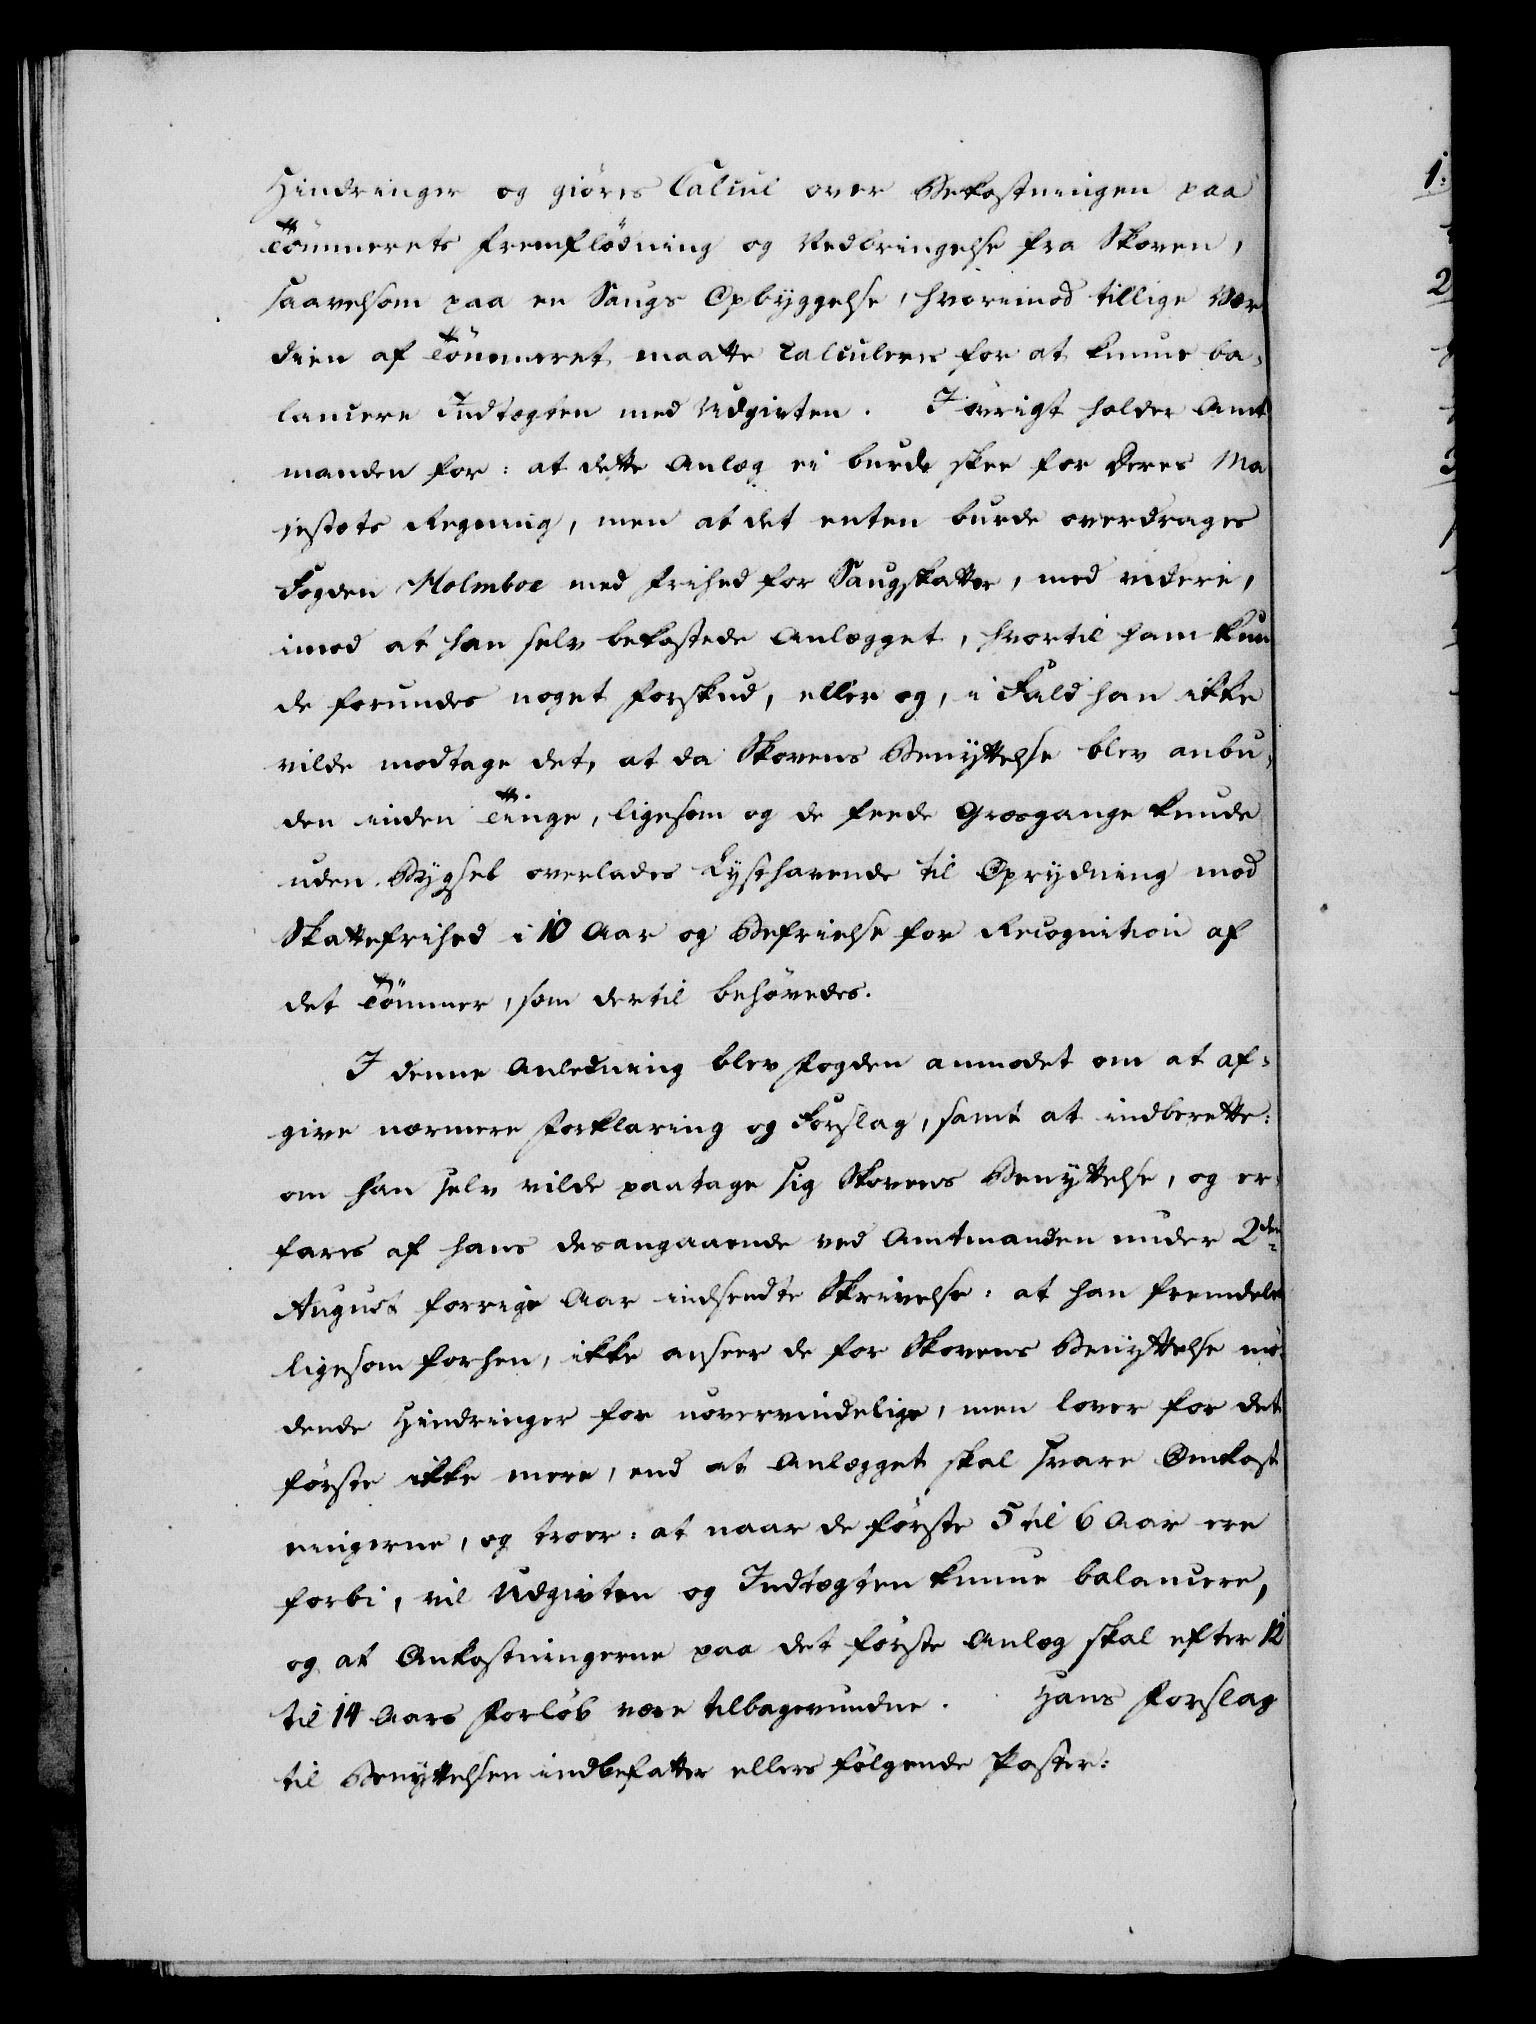 Hindringer og giöres Calcul over Bekostningen paa
Tömmerets Fremflödning og Nedbringelse fra Skoven,
saavelsom paa en Saugs Opbyggelse, hvorimod tillige Vær
dien af Tömmeret maatte calculeres for at kunne ba-
lancere Indtægten med Udgivten. I övrigt holder Amt
manden for: at dette Anlæg ei burde skee for Deres Ma
jestæts Regning, men at det enten burde overdrages
Fogden Holmboe med Frihed for Saugskatter, med videre,
imod at han selv bekostede Anlægget, hvortil ham kun
de forundes noget Forskud, eller og, i Fald han ikke
vilde modtage det, at da Skovens Benyttelse blev anbu-
den inden Tinge, ligesom og de feede Græsgange kunde
uden Bygsel overlades Lysthavende til Oprydning mod
Skattefrihed i 10 Aar og Befrielse for Recognition af
det Tömmer, som dertil behövedes.
I denne Anledning blev Fogden anmodet om at af-
give nærmere Forklaring og Forslag, samt at indberette:
om han selv vilde paatage sig Skovens Benyttelse, og er-
fares af hans desangaaende ved Amtmanden under 2den
August forrige Aar indsendte Skrivelse: at han fremdeles
ligesom forhen, ikke anseer de for Skovens Benyttelse mö-
dende Hindringer for uovervindelige, men lover for det
förste ikke mere, end at Anlægget skal svare Omkost
ningerne, og troer: at naar de förste 5 til 6 Aar ere
forbi, vil Udgivten og Indtægten kunne balancere,
og at Omkostningerne paa det förste Anlæg skal efter 12
til 14 Aars Forlöb være tilbagevundne. Hans Forslag
til Benyttelsen indbefatter ellers fölgende Poster:
1:
2
3